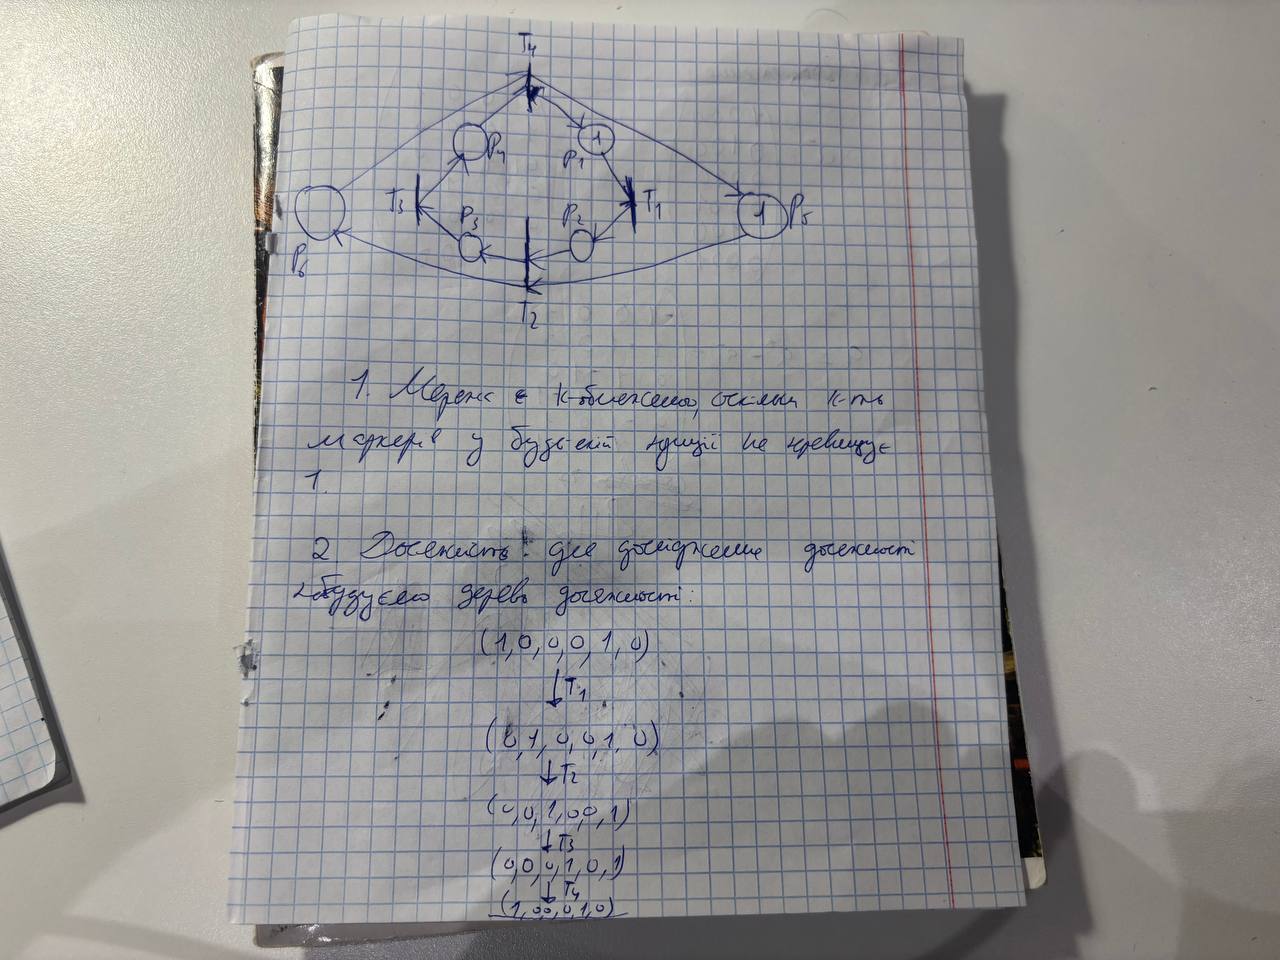 T4
P4
1
P1
T3
T1
P3
P2
1
P5
P6
T2
1. Мережа є К-обмежено, оскільки к-ть
маркерів у будь-якій позиції не перевищує
1.
2 Досяжність: для дослідження досяжності
побудуємо дерево досяжності:
(1,0,0,0,1,0)
↓T1
(0,1,0,0,1,0)
↓T2
(0,0,1,0,0,1)
↓T3
(0,0,0,1,0,1)
↓T4
(1,0,0,0,1,0)